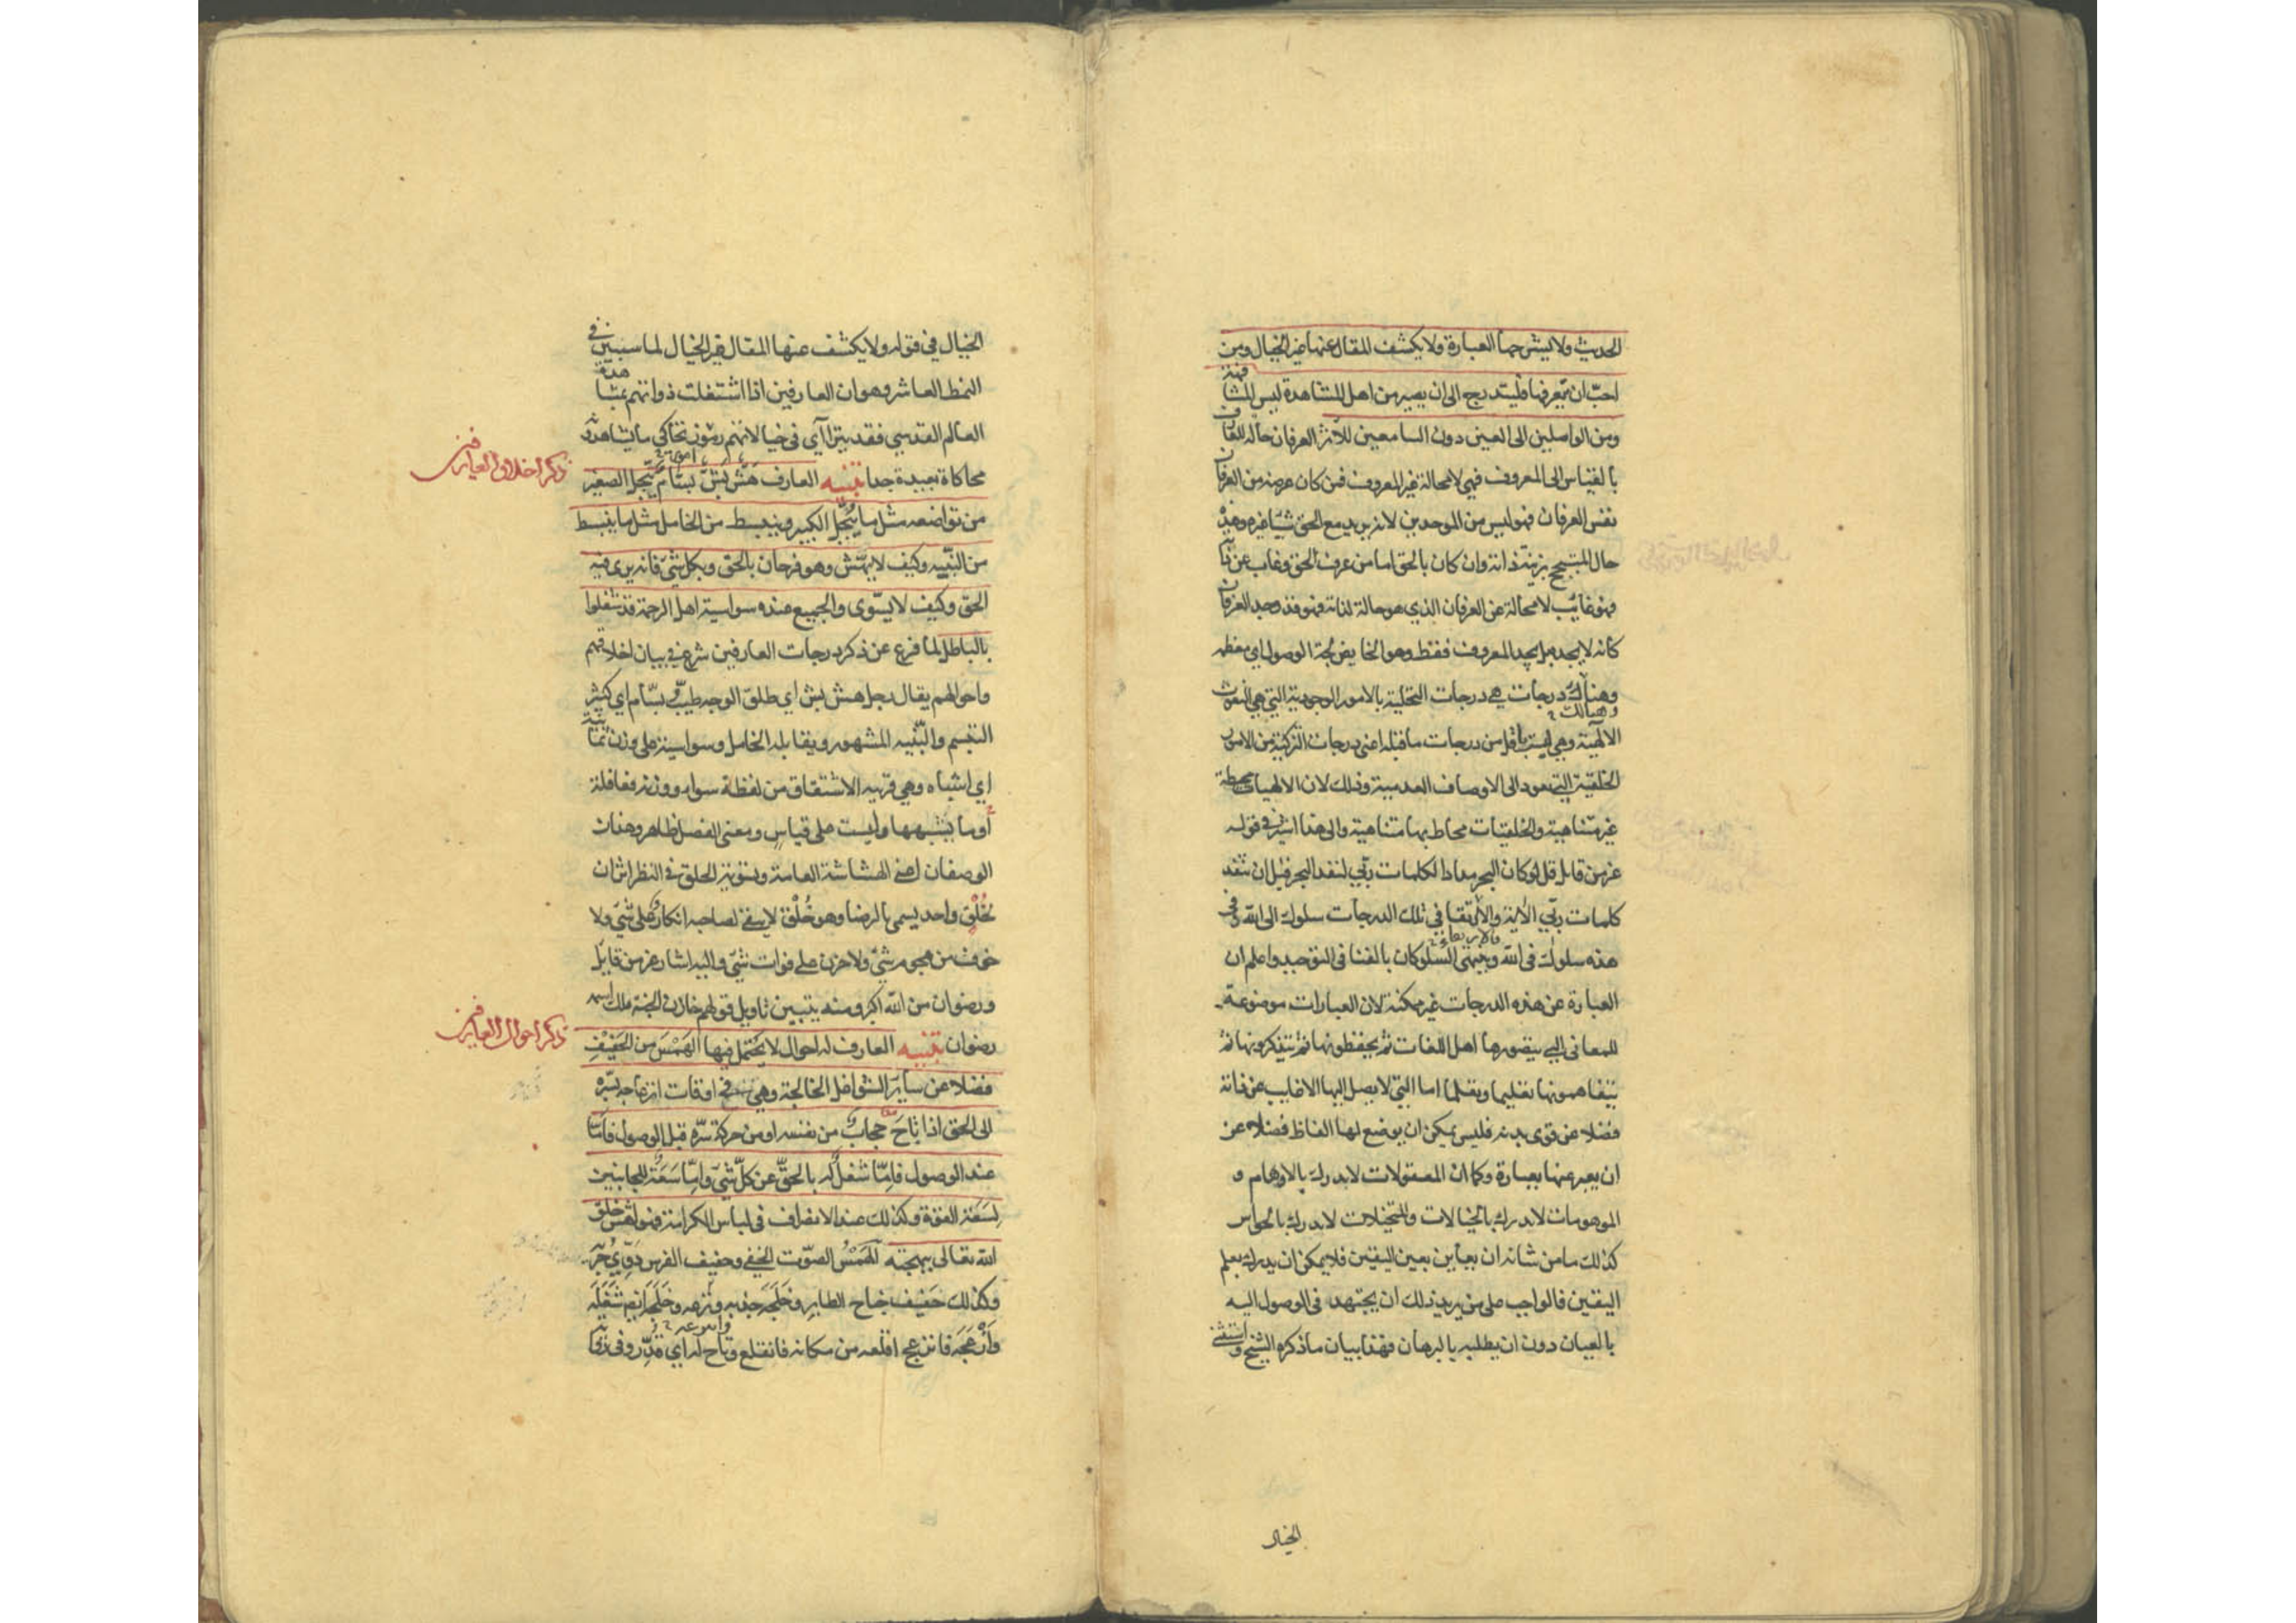 الحديث ولا يشرحها العبارة ولا يكشف المقال عنها غير الخيال ومن
احبّ ان يتعرفها فليتدرج الى ان يصير من اهل المشاهدة ليس المشا
فهة
ومن الواصلين الى العين دون السامعين للأثر العرفان حالة للعارف
بالقياس الى المعروف فهي لا محالة غير المعروف فمن كان غرضه من العرفان
نفس العرفان فهو ليس من الموحدين لانه يريد مع الحق شيئا غيره وهذه
حال المتبجح بزينة ذاته وان كان بالحق اما من عرف الحق وغاب عن ذاته
فهو غائب لا محالة عن العرفان الذي هو حالة لذاته فهو قد وجد العرفان
كأنه لا يجده بل يجد المعروف فقط وهو الخايض لجة الوصول اي معظمه
وهناك درجات هي درجات التحلية بالامور الوجودية التي هي النعوت
وهنالك
الالهية وهي ليست باقل من درجات ما قبله اعنى درجات التزكية من الامور
الخلقية التي تعود الى الاوصاف العدمية وذلك لان الالهيات محيطة
غير متناهية والخلقيات محاط بها متناهية والى هذا اشير في قوله
عز من قايل قل لو كان البحر مدادا لكلمات ربّي لنفد البحر قبل ان تنفد
كلمات ربّي الآية والارتقا في تلك الدرجات سلوك الى الله وفي
هذه سلوك في الله وينتهى السلوكان بالفنا في التوحيد واعلم ان
العبارة عن هذه الدرجات غير ممكنة لان العبارات موضوعة
للمعاني التي يتصورها اهل اللغات ثم يحفظونها ثم يتذكرونها ثم
يتفاهمونها تعليما وتعلما اما التي لا يصل اليها الا غايب عن ذاته
فضلا عن قوى بدنه فليس يمكن ان يوضع لها الفاظ فضلا عن
ان يعبر عنها بعبارة وكما ان المعقولات لا يدرك بالاوهام و
الموهومات لا يدرك بالخيالات والمتخيلات لا يدرك بالحواس
كذلك ما من شانه ان يعاين بعين اليقين فلا يمكن ان يدرك بعلم
اليقين فالواجب على من يريد ذلك ان يجتهد في الوصول اليه
بالعيان دون ان يطلبه بالبرهان فهذا بيان ما ذكره الشيخ واستثنى
الخيال
الخيال في قوله ولا يكشف عنها المقال غير الخيال لما سيبين في
النمط العاشر وهو ان العارفين اذا اشتغلت ذواتهم بمشا
هدة
العالم القدسي فقد يترائ في خيالاتهم امور تحاكي ما يشاهدونه
محاكاة بعيدة جدا تنبيه العارف هَشٌّ بَشٌّ بسّام يُبجّل الصغير
ذكر اخلاق العارفين
من تواضعه مثل ما يُبجّل الكبير وينبسط من الخامل مثل ما ينبسط
من النبيه وكيف لا يهشّ وهو فرحان بالحق وبكل شئ فانه يرى فيه
الحق وكيف لا يسوّى والجميع عنده سواسية اهل الرحمة قد شغلوا
بالباطل لما فرغ عن ذكر درجات العارفين شرع في بيان اخلاقهم
واحوالهم يقال رجل هش بش اي طلق الوجه طيّب وبسّام اي كثير
التبسم والنّبيه المشهور ويقابله الخامل وسواسية على وزن ثمانية
اي اشباه وهي قريبة الاشتقاق من لفظة سواء ووزنه فعافلة
أو ما يشبهها وليست على قياس ومعنى الفصل ظاهر وهذان
الوصفان اعني الهشاشة العامة وتسوية الخلق في النظر اثران
لخُلْق واحد يسمى بالرضا وهو خُلْق لا يبقى لصاحبه انكار على شئ ولا
خوف من هجوم شئ ولا حزن على فوات شئ واليه اشار عز من قايل
ورضوان من الله اكبر ومنه يتبين تاويل قولهم خازن الجنة ملك اسمه
رضوان تنبيه العارف له احوال لا يحتمل فيها الهَمْسَ من الحَفِيْفِ
ذكر احوال العارفين
فضلا عن سايَر الشواغل الخالجة وهي في اوقات انزعاجه بسّره
الى الحق اذا تاحَ حجابٌ من نفسه او من حركة سرّه قبل الوصول فامّا
عند الوصول فامّا شغلٌ له بالحقّ عن كلّ شئ وامّا سَعَة للجانبين
لِسَعَة القوّة وكذلك عند الانصراف في لباس الكرامة فهو اهشّ خلق
الله تعالى ببهجته الهَمْسُ الصّوت الخفي وحفيف الفرس دَوِيُّ جريه
وكذلك حَفيف جناح الطاير وخَلَجَه جذبه ونزعه وخَلَجَ ايضا شَغَلَه
وأزْعَجَه فانزعج اقلعه من مكانه فانقلع وتاح له اي قُدِّر وفي رواية